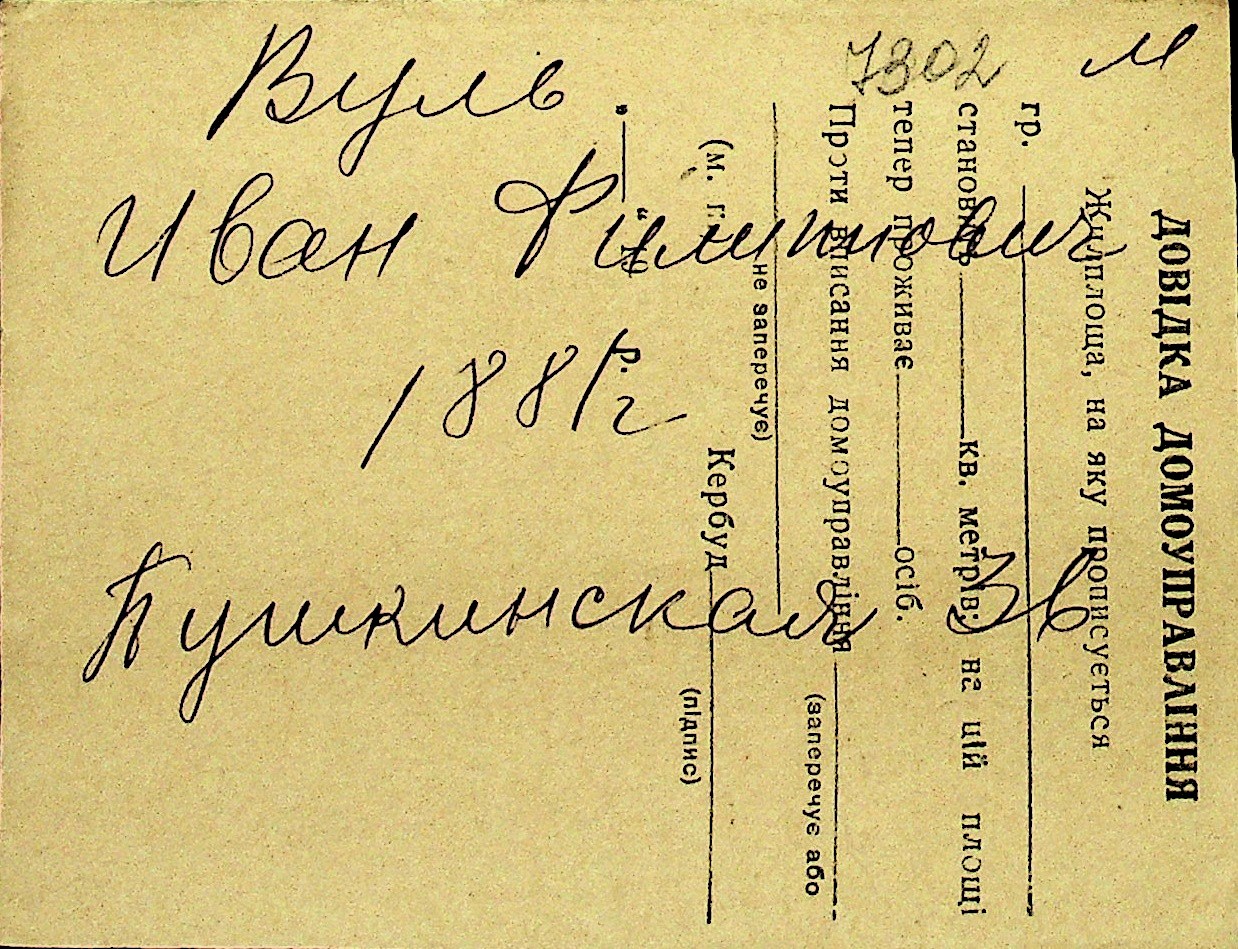 7302 м
Вуль
Иван Филипович
1881 г
Пушкинская 36
ДОВІДКА ДОМОУПРАВЛІННЯ
Житлплоща, на яку прописується
гр.
становить кв. метрів; на цій площі
тепер проживає осіб.
Проти вписання домоуправління
(заперечує або
не заперечує)
Кербуд
(підпис)
(м. п.
" " р.